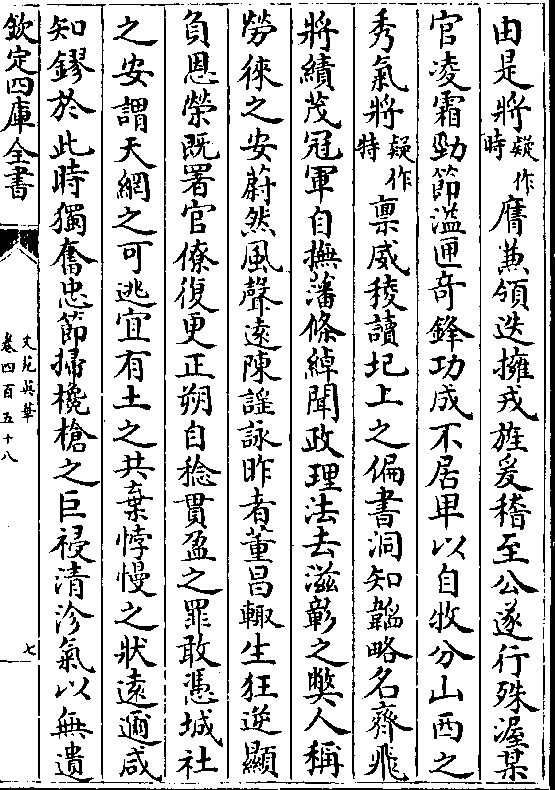 由是將疑作時膺兼領迭擁戎旌爰稽至公遂行殊渥某
官凌霜勁節滥匣奇鋒功成不居卑以自牧分山西之
秀氣將疑作特禀威稜讀圯上之偏書洞知韜略名齊飛
將績茂冠軍自撫藩條綽聞政理法去滋彰之弊人稱
勞徠之安蔚然風聲遠陳謡詠昨者董昌輙生狂逆顯
負恩榮既署官僚復更正朔自稔貫盈之罪敢憑城社
之安謂天網之可逃宜有土之共棄悖慢之狀遠邇咸
知鏐於此時獨奮忠節掃欃槍之巨祲清沴氣以無遺
欽定四庫全書
文苑英華
卷四百五十八
七